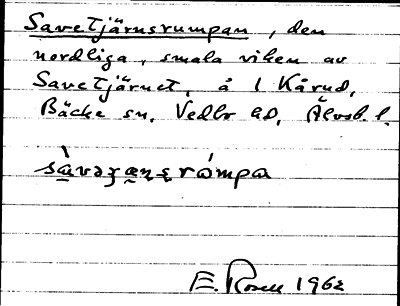 Savetjärnsrumpan, den
nordliga, smala viken av
Savetjärnet, å 1 Kårud,
Bäcke sn, Vedbo hd, Älvsb. l.
E. Rosell 1962